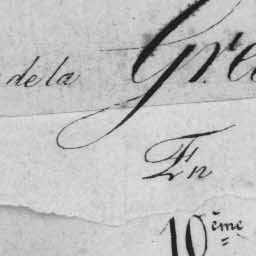 de la Gre
En
10ème